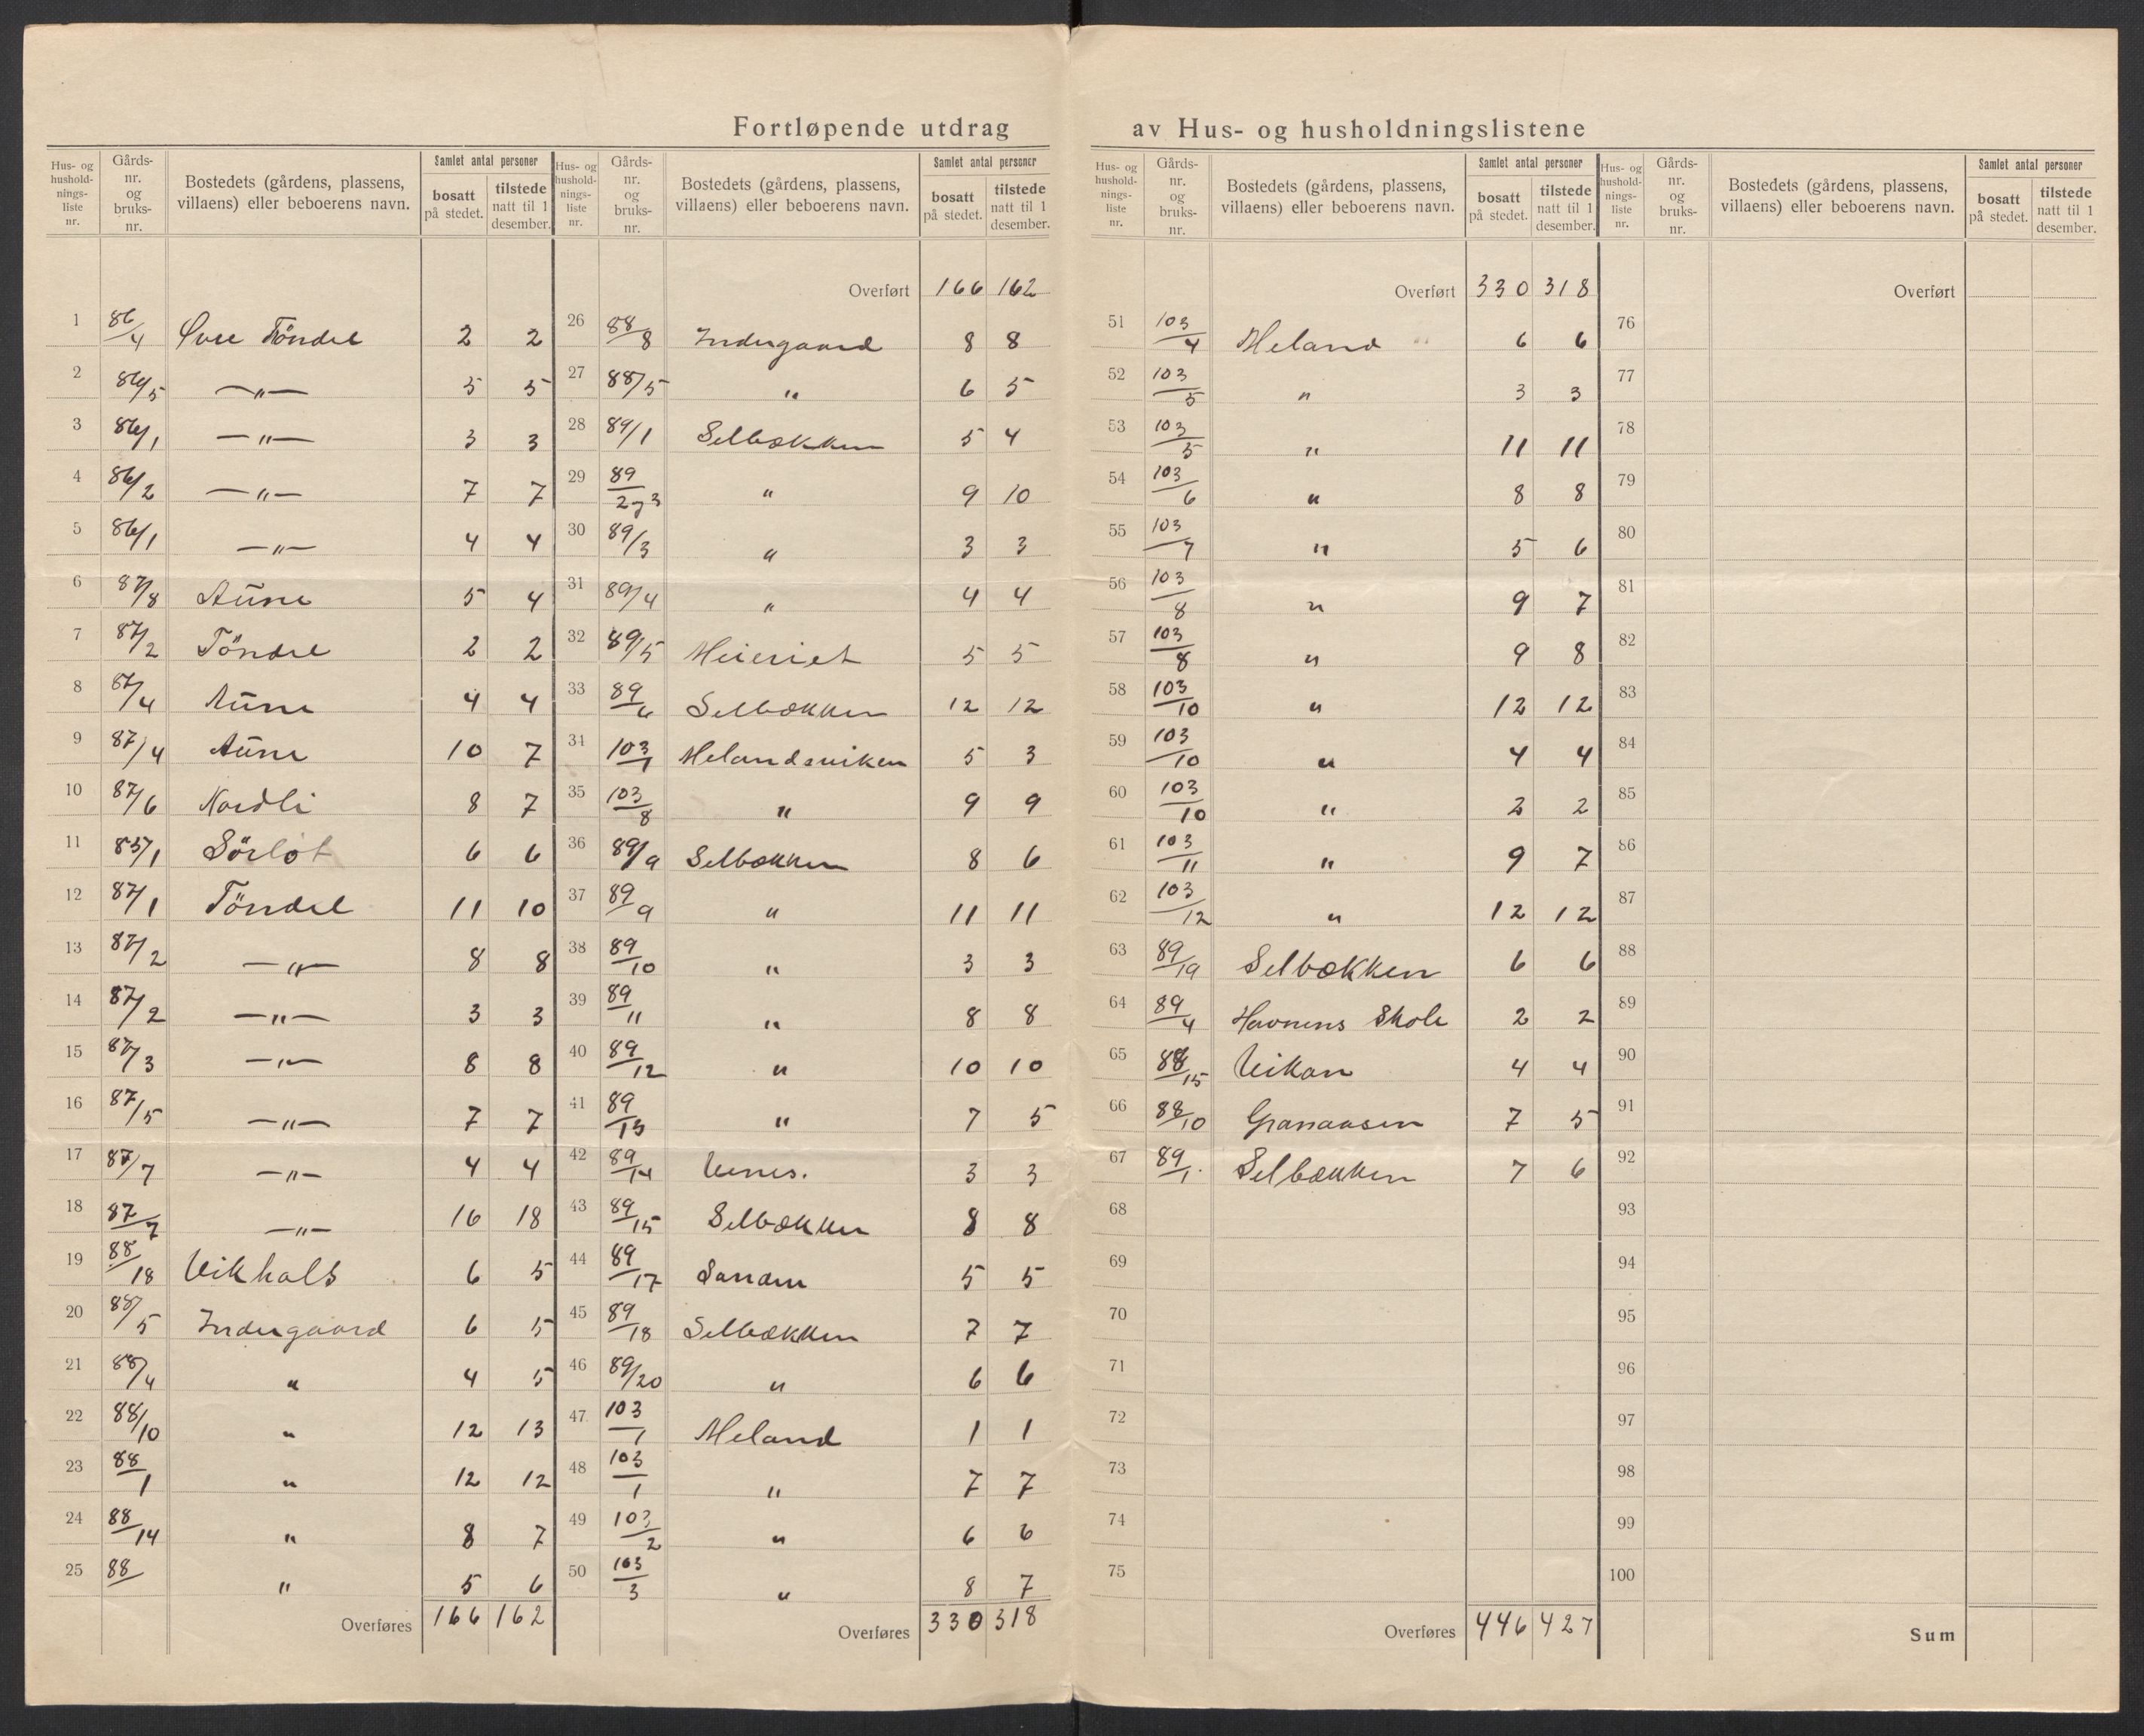 Fortløpende utdrag av Hus- og husholdningslistene
Hus- og husholdnings-liste nr. | Gårds-nr. og bruks-nr. | Bostedets (gårdens, plassens, villaens) eller beboerens navn. | Samlet antal personer | bosatt på stedet. | tilstede natt til 1 desember.
1 86/4 Øvre Töndel 2 2
2 86/5 —"— 5 5
3 86/1 —"— 3 3
4 86/2 —"— 7 7
5 86/1 —"— 4 4
6 87/8 Aune 5 4
7 87/2 Töndel 2 2
8 87/4 Aune 4 4
9 87/4 Aune 10 7
10 87/6 Nordli 8 7
11 Sörlöt 6 6
12 87/1 Töndel 11 10
13 87/2 —"— 8 8
14 87/2 —"— 3 3
15 87/3 —"— 8 8
16 87/5 —"— 7 7
17 87/7 —"— 4 4
18 87/7 —"— 16 18
19 88/18 Vikhals 6 5
20 88/5 Indergaard 6 5
21 88/4 " 4 5
22 88/10 " 12 13
23 88/1 " 12 12
24 88/14 " 8 7
25 88/ " 5 6
Overføres 166 162
Hus- og husholdnings-liste nr. | Gårds-nr. og bruks-nr. | Bostedets (gårdens, plassens, villaens) eller beboerens navn. | Samlet antal personer | bosatt på stedet. | tilstede natt til 1 desember.
Overført 166 162
26 88/8 Indergaard 8 8
27 88/5 " 6 5
28 89/1 Selbækken 5 4
29 89/2 og 3 " 9 10
30 89/3 " 3 3
31 89/4 " 4 4
32 89/5 Meieriet 5 5
33 89/6 Selbækken 12 12
34 103/1 Melandsviken 5 3
35 103/8 " 9 9
36 89/9 Selbækken 8 6
37 89/9 " 11 11
38 89/10 " 3 3
39 89/11 " 8 8
40 89/12 " 10 10
41 89/13 " 7 5
42 89/14 3 3
43 89/15 Selbækken 8 8
44 89/17 5 5
45 89/18 Selbækken 7 7
46 89/20 " 6 6
47 103/1 Meland 1 1
48 103/1 " 7 7
49 103/2 " 6 6
50 103/3 " 8 7
Overføres 330 318
Hus- og husholdnings-liste nr. | Gårds-nr. og bruks-nr. | Bostedets (gårdens, plassens, villaens) eller beboerens navn. | Samlet antal personer | bosatt på stedet. | tilstede natt til 1 desember.
Overført 330 318
51 103/4 Meland 6 6
52 103/5 " 3 3
53 103/5 " 11 11
54 103/6 " 8 8
55 103/7 " 5 6
56 103/8 " 9 7
57 103/8 " 9 8
58 103/10 " 12 12
59 103/10 " 4 4
60 103/10 " 2 2
61 103/11 " 9 7
62 103/12 " 12 12
63 89/19 Selbækken 6 6
64 89/4 Havnens Skole 2 2
65 88/15 Vikan 4 4
66 88/10 Granaasen 7 5
67 89/1 Selbækken 7 6
68
69
70
71
72
73
74
75
Overføres 446 427
Hus- og husholdnings-liste nr. | Gårds-nr. og bruks-nr. | Bostedets (gårdens, plassens, villaens) eller beboerens navn. | Samlet antal personer | bosatt på stedet. | tilstede natt til 1 desember.
Overført
76
77
78
79
80
81
82
83
84
85
86
87
88
89
90
91
92
93
94
95
96
97
98
99
100
Sum